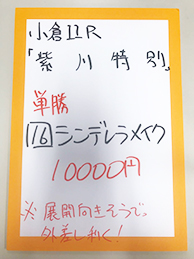 小倉11R
「紫川特別」
単勝
16シンデレラメイク
10000円
※展開向きそうで、
外差し利く!